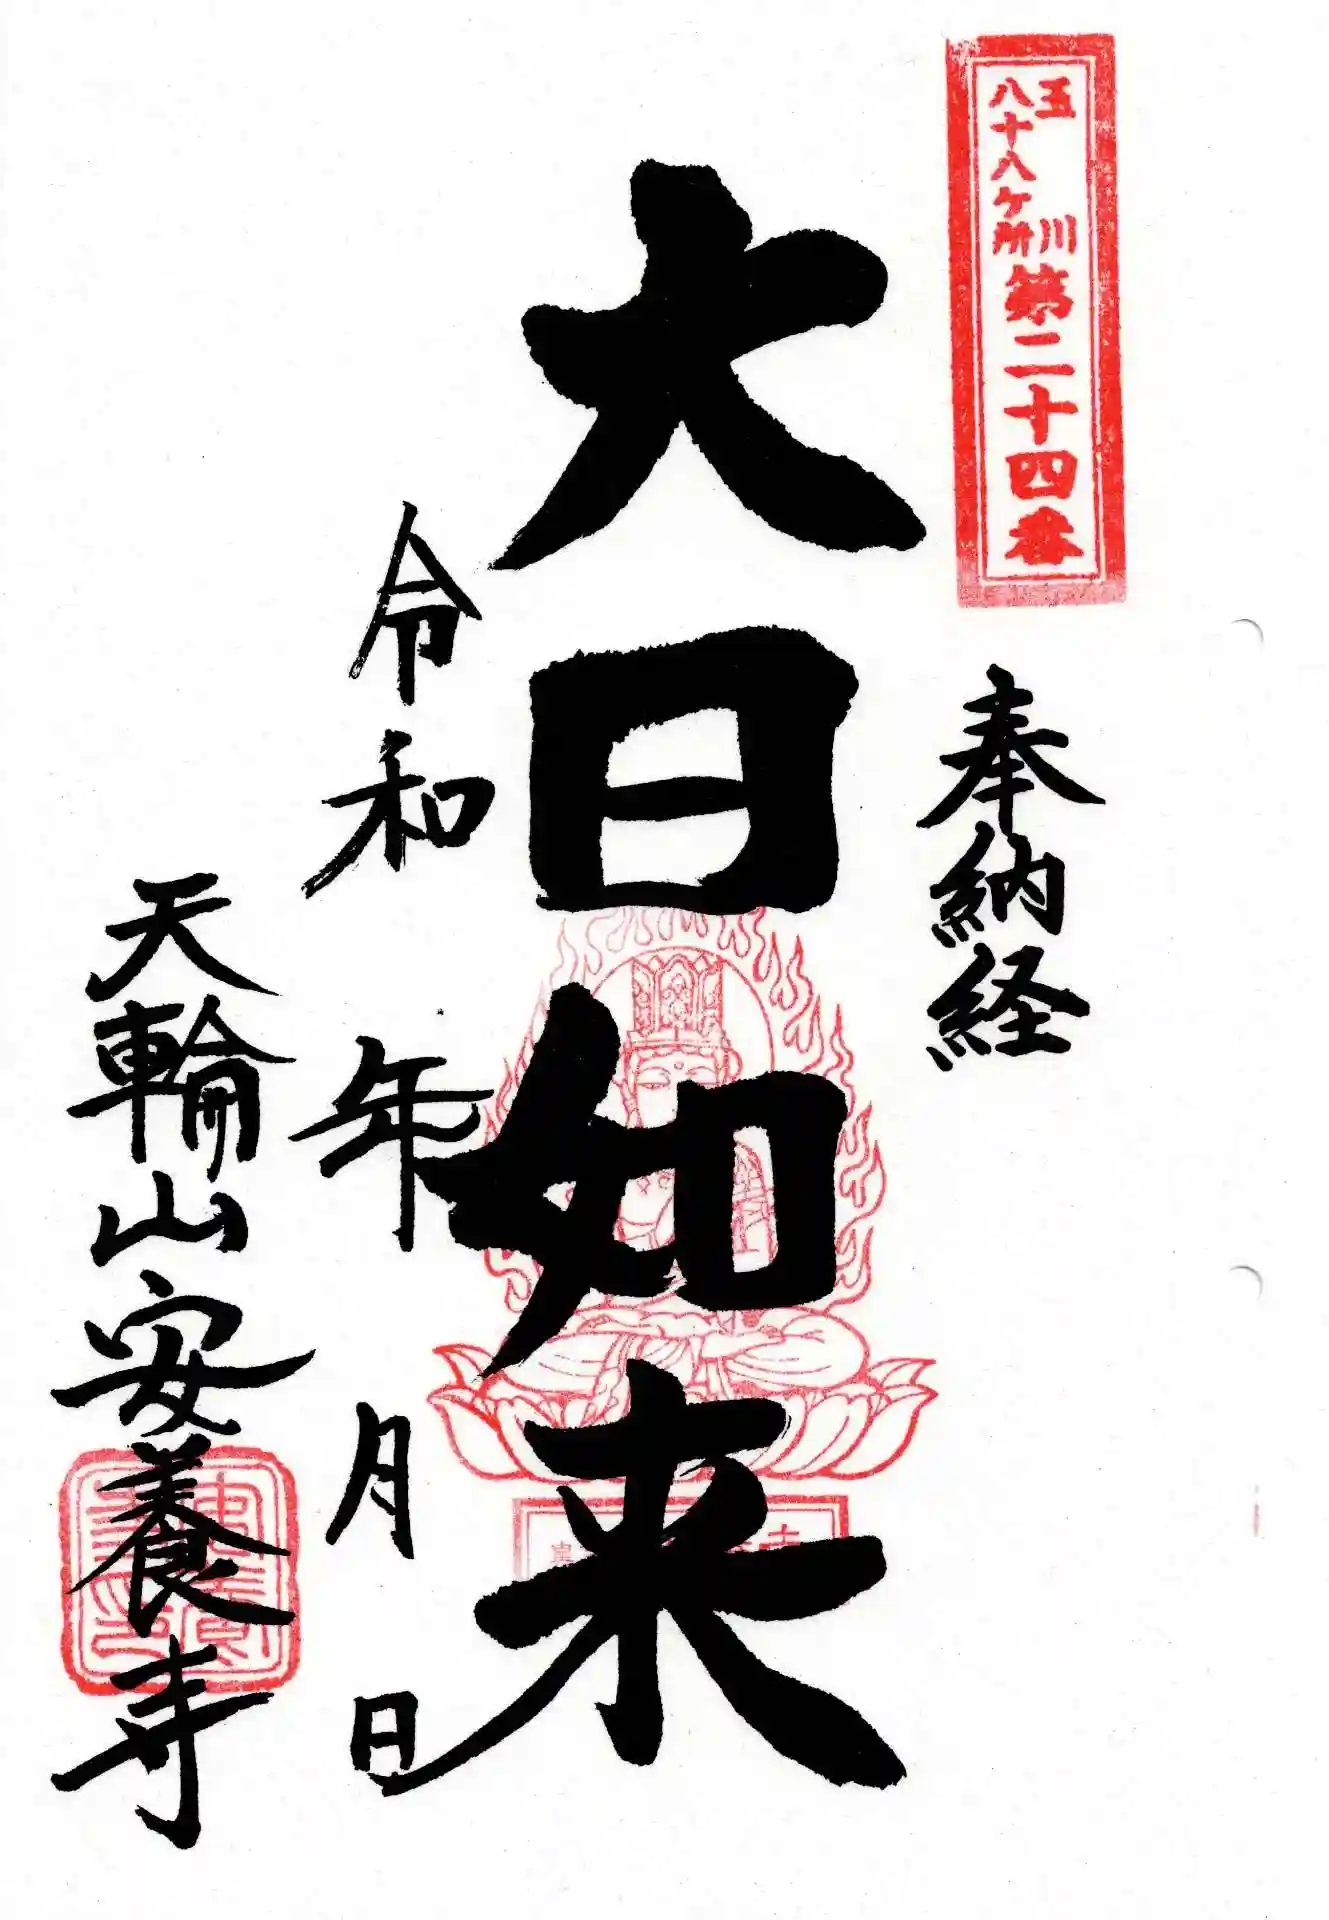 玉川
八十八ケ所
第二十四番
奉納経
大日如来
令和 年 月 日
天輪山安養寺